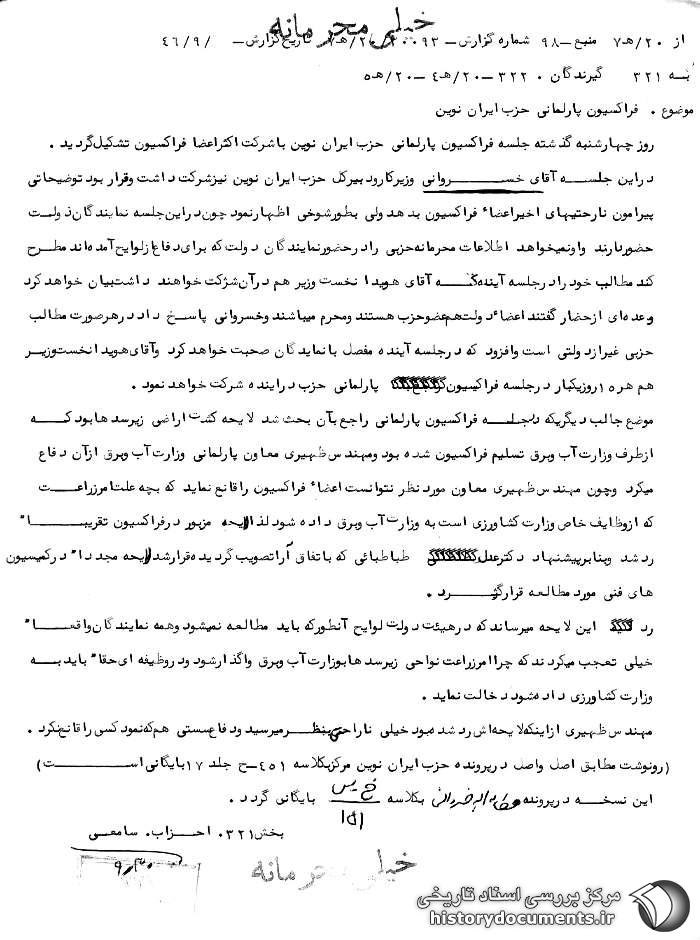 خیلی محرمانه
از ۲۰/هـ۷ منبع –۹۸ شماره گزارش– تاریخ گزارش– /۹/ ۴۶
به ۳۲۱ گیرندگان . ۳۲۲–۲۰/هـ۴ –۲۰/هـ۵
موضوع . فراکسیون پارلمانی حزب ایران نوین
روز چهارشنبه گذشته جلسه فراکسیون پارلمانی حزب ایران نوین با شرکت اکثر اعضا فراکسیون تشکیل گردید .
در این جلسه آقای خسروانی وزیر کار و دبیر کل حزب ایران نوین نیز شرکت داشت و قرار بود توضیحاتی
پیرامون نارحتیهای اخیر اعضاء فراکسیون بدهد ولی بطور شوخی اظهار نمود چون در این جلسه نمایندگان دولت
حضور دارند و او نمیخواهد اطلاعات محرمانه حزبی را در حضور نمایندگان دولت که برای دفاع از لوایح آمده اند مطرح
کند مطالب خود را در جلسه آینده که آقای هویدا نخست وزیر هم در آن شرکت خواهند داشت بیان خواهد کرد
و عده ای از حضار گفتند اعضاء دولت هم عضو حزب هستند و محرم میباشند و خسروانی پاسخ داد در هر صورت مطالب
حزبی غیر از دولتی است و افزود که در جلسه آینده مفصل با نمایندگان صحبت خواهد کرد و آقای هویدا نخست وزیر
هم هر ۱۵ روز یکبار در جلسه فراکسیون پارلمانی حزب در اینده شرکت خواهد نمود .
موضع جالب دیگری که در جلسه فراکسیون پارلمانی راجع بآن بحث شد لایحه کشت اراضی زیر سدها بود که
از طرف وزارت آب و برق تسلیم فراکسیون شده بود و مهندس ظهیری معاون پارلمانی وزارت آب و برق از آن دفاع
میکرد و چون مهندس ظهیری معاون مورد نظر نتوانست اعضاء فراکسیون را قانع نماید که بچه علت امر زراعت
که از وظایف خاص وزارت کشاورزی است به وزارت آب و برق داده شود لذا لایحه مزبور در فراکسیون تقریباً
رد شد و بنابر پیشنهاد دکتر عدل طباطبائی که باتفاق آرا تصویب گردیده قرار شد لایحه مجدداً در کمیسیون
های فنی مورد مطالعه قرار گیرد .
رد این لایحه میرساند که در هیئت دولت لوایح آنطور که باید مطالعه نمیشود و همه نمایندگان واقعاً
خیلی تعجب میکردند که چرا امر زراعت نواحی زیر سدها بوزارت آب و برق واگذار شود و در وظیفه ای حقاً باید به
وزارت کشاورزی داده شود دخالت نماید .
مهندس ظهیری از اینکه لایحه اش رد شده بود خیلی ناراحت بنظر میرسید و دفاع سستی هم که نمود کسی را قانع نکرد .
(رونوشت مطابق اصل واصل در پرونده حزب ایران نوین مرکز بکلاسه ۴۵۱–ح جلد ۱۷ بایگانی است)
این نسخه در پرونده بکلاسه بایگانی گردد .
۱۵۱
بخش ۳۲۱. احزاب. سامعی
۹/۳۰
خیلی محرمانه
مرکز بررسی اسناد تاریخی
historydocuments.ir